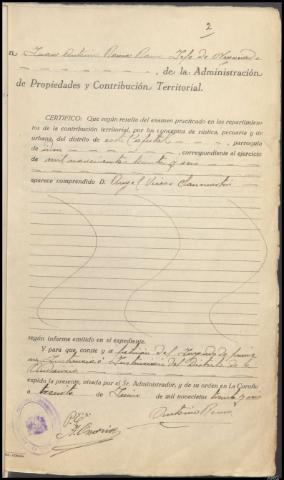 2
n Juan Antonio Jefe de
de la Administración
de Propiedades y Contribución Territorial.
CERTIFICO: Que según resulta del examen practicado en los repartimien-
tos de la contribución territorial, por los conceptos de rústica, pecuaria y de
urbana, del distrito de esta Capital, parroquia
de correspondiente al ejercicio
de mil novecientos treinta y uno
aparece comprendido D. Angel Sanmartin
según informe emitido en el expediente.
Y para que conste y a petición del Juzgado de prime
ra Instancia e Instrucción del Distrito de la
Audiencia
expido la presente, visada por el Sr. Administrador, y de su orden en La Coruña
a treinta de de mil novecientos treinta y uno
Antonio